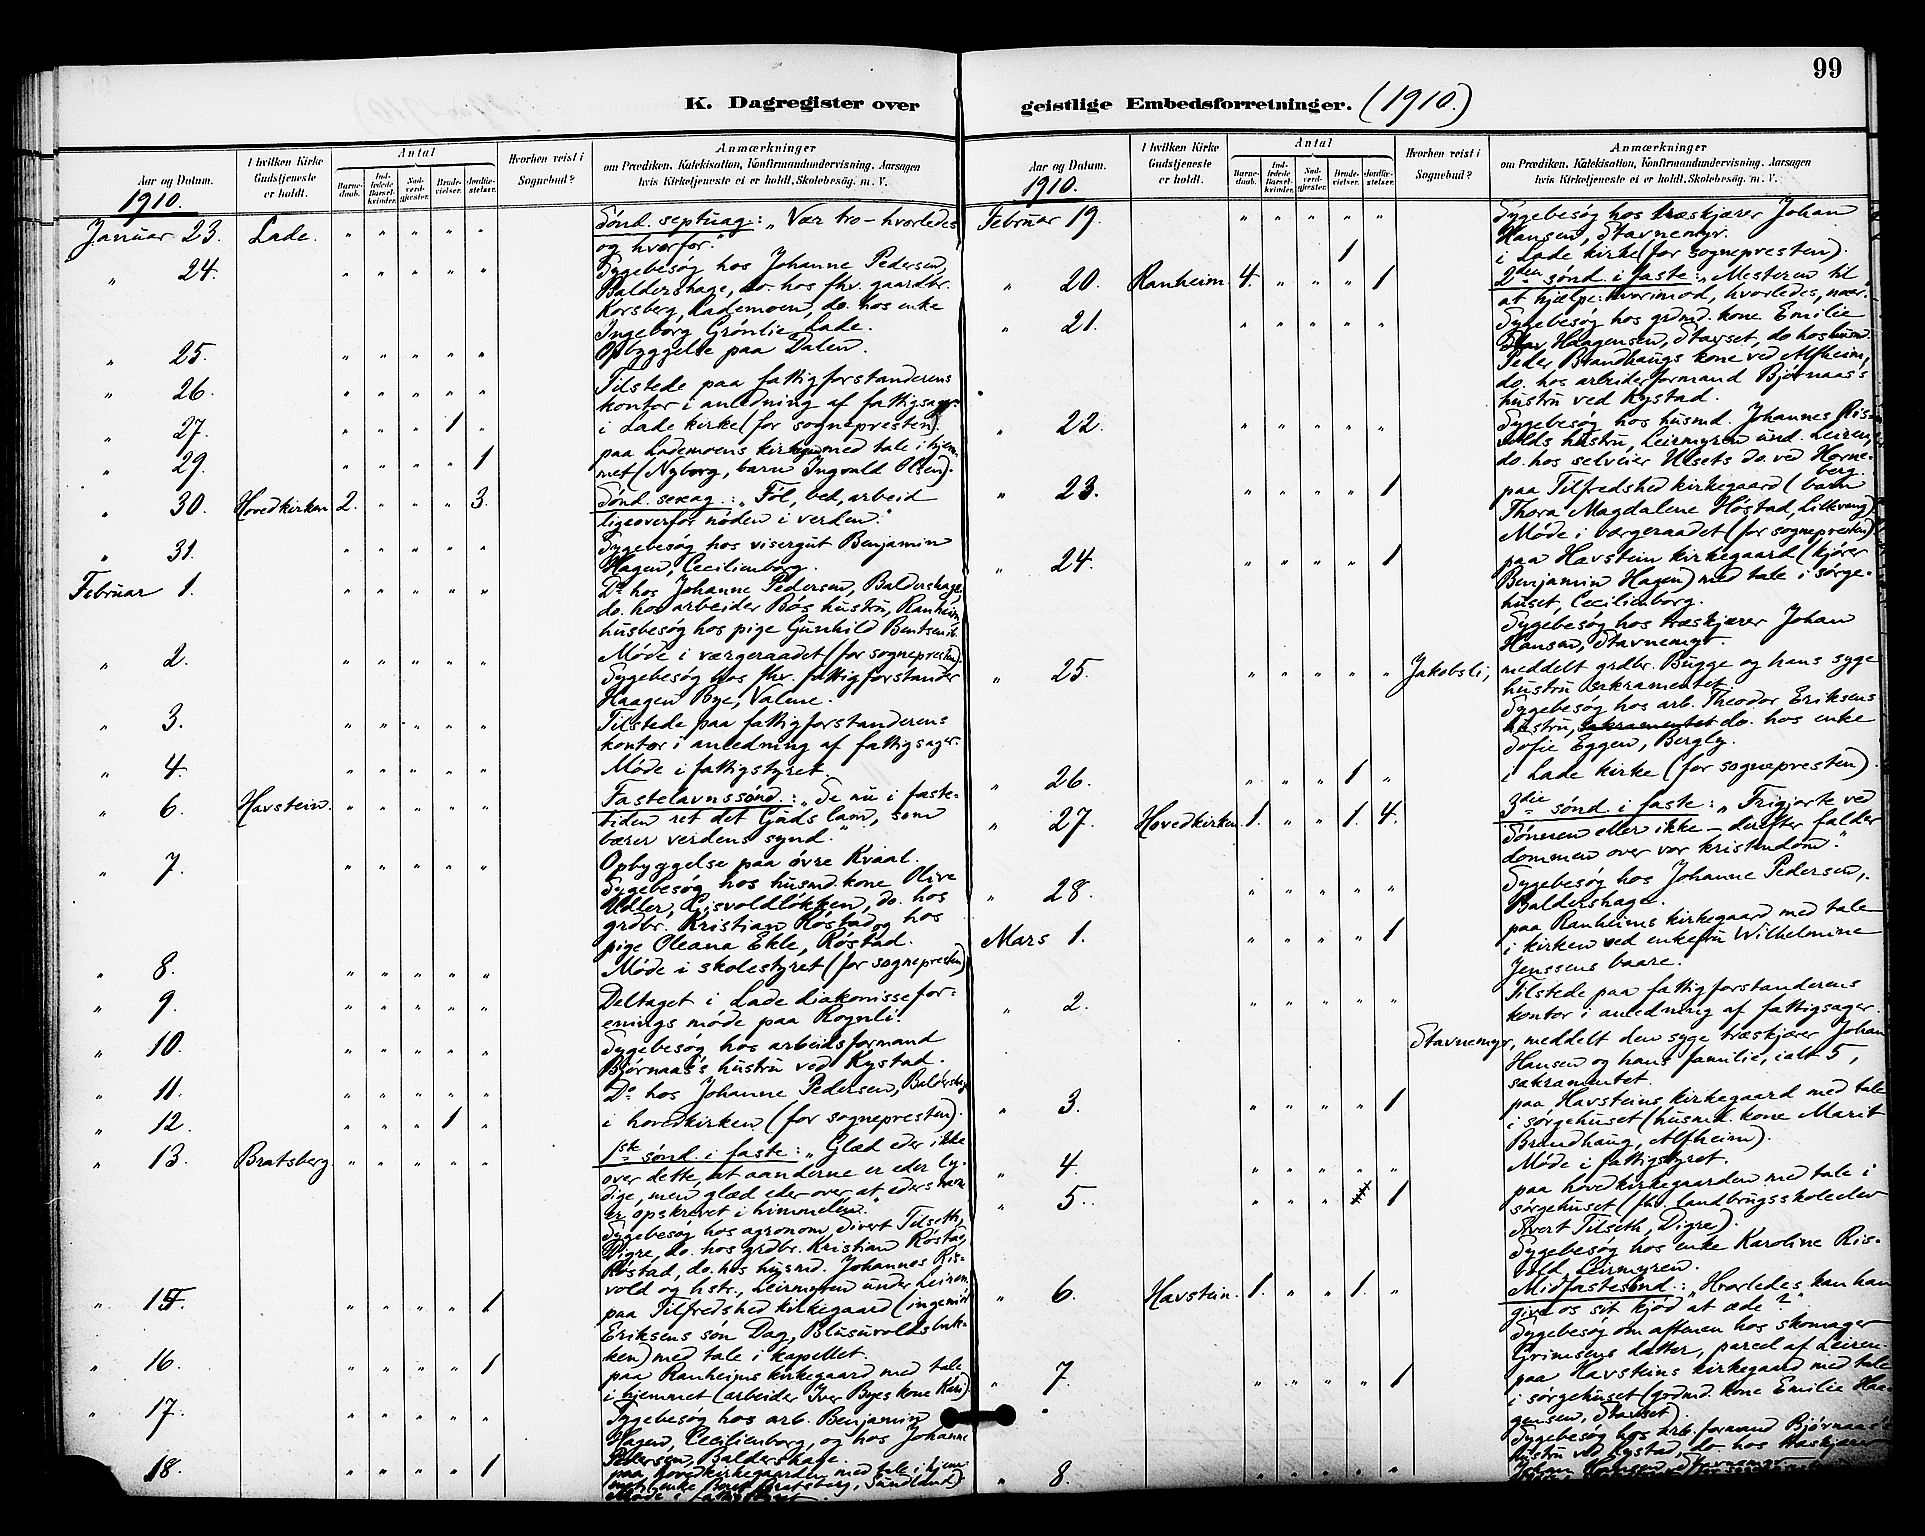 99
K. Dagregister over geistlige Embedsforretninger. (1910)
Aar og Datum.
I hvilken Kirke Gudstjeneste er holdt.
Antal
Barnedaab.
Indledede Barselkvinder.
Nadverdgjester.
Brudevielser.
Jordfæstelser.
Hvorhen reist i Sognebud?
Anmærkninger
om Prædiken, Katekisation, Konfirmandundervisning, Aarsagen
hvis Kirketjeneste ei er holdt, Skolebesøg. m. V.
1910.
Januar 23. Lade. " " " " " Sønd. septuag.: "Vær tro – hvorledes
og hvorfor."
" 24. " " " " " Sygebesøg hos Johanne Pedersen,
Baldershage, do. hos fhv. gaardbr.
Korsberg, Lademoen, do. hos enke
Ingeborg Grönlie, Lade.
" 25. " " " " " Opbyggelse paa Dalen.
" 26. " " " " " Tilstede paa fattigforstanderens
kontor i anledning af fattigsager.
" 27. " " " 1 " i Lade kirke (for sognepresten).
" 29. " " " " 1 paa Lademoens kirkegaard med tale i hjem-
met (Nyborg, barn Ingvald Olsen).
" 30. Hovedkirken 2. " " " 3. Sønd. sexag.: "Föl, bed, arbeid
ligeoverfor nöden i verden."
" 31. " " " " " Sygebesøg hos visergut Benjamin
Hagen, Cecilienborg.
Februar 1. " " " " " Do hos Johanne Pedersen, Baldershage,
do. hos arbeider Bös hustru, Ranheim,
husbesøg hos pige Gunhild Bentsen
" 2. " " " " " Möde i værgeraadet (for sognepresten).
Sygebesøg hos fhv. fattigforstander
Haagen Bye, Valene.
" 3. " " " " " Tilstede paa fattigforstanderens
kontor i anledning af fattigsager.
" 4. " " " " " Möde i fattigstyret.
" 6. Havstein. " " " " " Fastelavnssönd.: "Se nu i faste-
tiden ret det Guds lam, som
bærer verdens synd."
" 7. " " " " " Opbyggelse paa övre Kvaal.
Sygebesøg hos husmd. kone Olive
Udler, Risvoldlökken, do. hos
grdbr. Kristian Röstad og hos
pige Oleana Ekle, Röstad.
" 8. " " " " " Möde i skolestyret (for sognepresten)
" 9. " " " " " Deltaget i Lade diakonissefor-
enings möde paa Rognli.
" 10. " " " " " Sygebesøg hos arbeidsformand
Björnaas's hustru ved Kystad.
" 11. " " " " " Do hos Johanne Pedersen, Baldershage
" 12. " " " 1 " i hovedkirken (for sognepresten).
" 13. Bratsberg. " " " " " 1ste sönd. i faste: "Glæd eder ikke
over dette, at aanderne er eder ly-
dige, men glæd eder over, at eders navne
er opskrevet i himmelen."
Sygebesøg hos agronom Sivert Tilseth,
Digre, do. hos grdbr. Kristian Röstad,
Röstad, do. hos husmd. Johannes Ris-
vold og hstr., Leirmyren under Leiren.
" 15. " " " " 1 paa Tilfredshed kirkegaard (ingeniör
Eriksens sön Dag, Blusuvoldsbak-
ken) med tale i kapellet.
" 16. " " " " 1 paa Ranheims kirkegaard med tale
i hjemmet (arbeider Iver Byes kone Kari).
" 17. " " " " " Sygebesøg hos arb. Benjamin
Hagen, Cecilienborg, og hos Johanne
Pedersen, Baldershage.
18. " " " " 1 paa hovedkirkegaarden med tale i hjem-
met (enke Bratsberg, Sundland)
Möde i fattigstyret.
Aar og Datum.
I hvilken Kirke Gudstjeneste er holdt.
Antal
Barnedaab.
Indledede Barselkvinder.
Nadverdgjester.
Brudevielser.
Jordfæstelser.
Hvorhen reist i Sognebud?
Anmærkninger
om Prædiken, Katekisation, Konfirmandundervisning, Aarsagen
hvis Kirketjeneste ei er holdt, Skolebesøg. m. V.
1910.
Februar 19. " " " " " Sygebesøg hos træskjærer Johan
Hansen, Stavnemyr.
1 i Lade kirke (for sognepresten).
" 20. Ranheim 4. " " " 1 2den sönd. i faste: "Mesteren til
at hjælpe: hvorimod, hvorledes, naar."
" 21. " " " " " Sygebesøg hos grdmd. kone Emilie
Haagensen, Stavset, do. hos husmd.
Peder Brandhaugs kone ved Alfheim,
do. hos arbeiderformand Björnaas's
hustru ved Kystad.
" 22. " " " " " Sygebesøg hos husmd. Johannes Ris-
volds hustru, Leirmyren und. Leiren,
do. hos selveier Ulsets do. ved Horne-
berg.
" 23. " " " " 1 paa Tilfredshed kirkegaard (barn
Thora Magdalene Höstad, Lilkvang).
Möde i værgeraadet (for sognepresten)
" 24. " " " " 1 paa Havstein kirkegaard (kjörer
Benjamin Hagen) med tale i sörge-
huset, Cecilienborg.
Sygebesøg hos træskjærer Johan
Hansen, Stavnemyr.
" 25. " " " " " Jakobsli, meddelt grdbr. Bugge og hans syge
hustru sakramentet.
Sygebesøg hos arb. Theodor Eriksens
hustru, sakramentet do. hos enke
Sofie Eggen, Bergly.
" 26. " " " 1 " i Lade kirke (for sognepresten).
" 27. Hovedkirken. 1. " " 1. 4. 3die sönd. i faste: "Frigjorte ved
Sönnen eller ikke – derefter falder
dommen over vor kristendom."
" 28. " " " " " Sygebesøg hos Johanne Pedersen,
Baldershage.
Mars 1. " " " " 1 paa Ranheims kirkegaard med tale
i kirken ved enkefru Wilhelmine
Jenssens baare.
" 2. " " " " " Tilstede paa fattigforstanderens
kontor i anledning af fattigsager.
Stavnemyr, meddelt den syge træskjærer Johan
Hansen og hans familie, ialt 5,
sakramentet.
" 3. " " " " 1 paa Havsteins kirkegaard med tale
i sörgehuset (husmd. kone Marit
Brandhaug, Alfheim).
" 4. " " " " " Möde i fattigstyret.
" 5. " " " 1 paa hovedkirkegaarden med tale i
sörgehuset (fhv. landbrugsskoleelev
Sivert Tilseth, Digre).
Sygebesøg hos enke Karoline Ris-
vold, Leirmyren.
" 6. Havstein. 1. " " 1. " Midfastesönd.: "Hvorledes kan han
give os sit kjød at æde?"
Sygebesøg om aftenen hos skomager
Grimsens datter, parcel af Leiren
" 7. " " " " 1 paa Havsteins kirkegaard med tale
i sörgehuset (grdmd. kone Emilie Haa-
gensen, Stavset).
Sygebesøg hos arb. formand Björnaas's
hustru ved Kystad, do. hos træskjærer
" 8. " " " " " Johan Hansen, Stavnemyr.